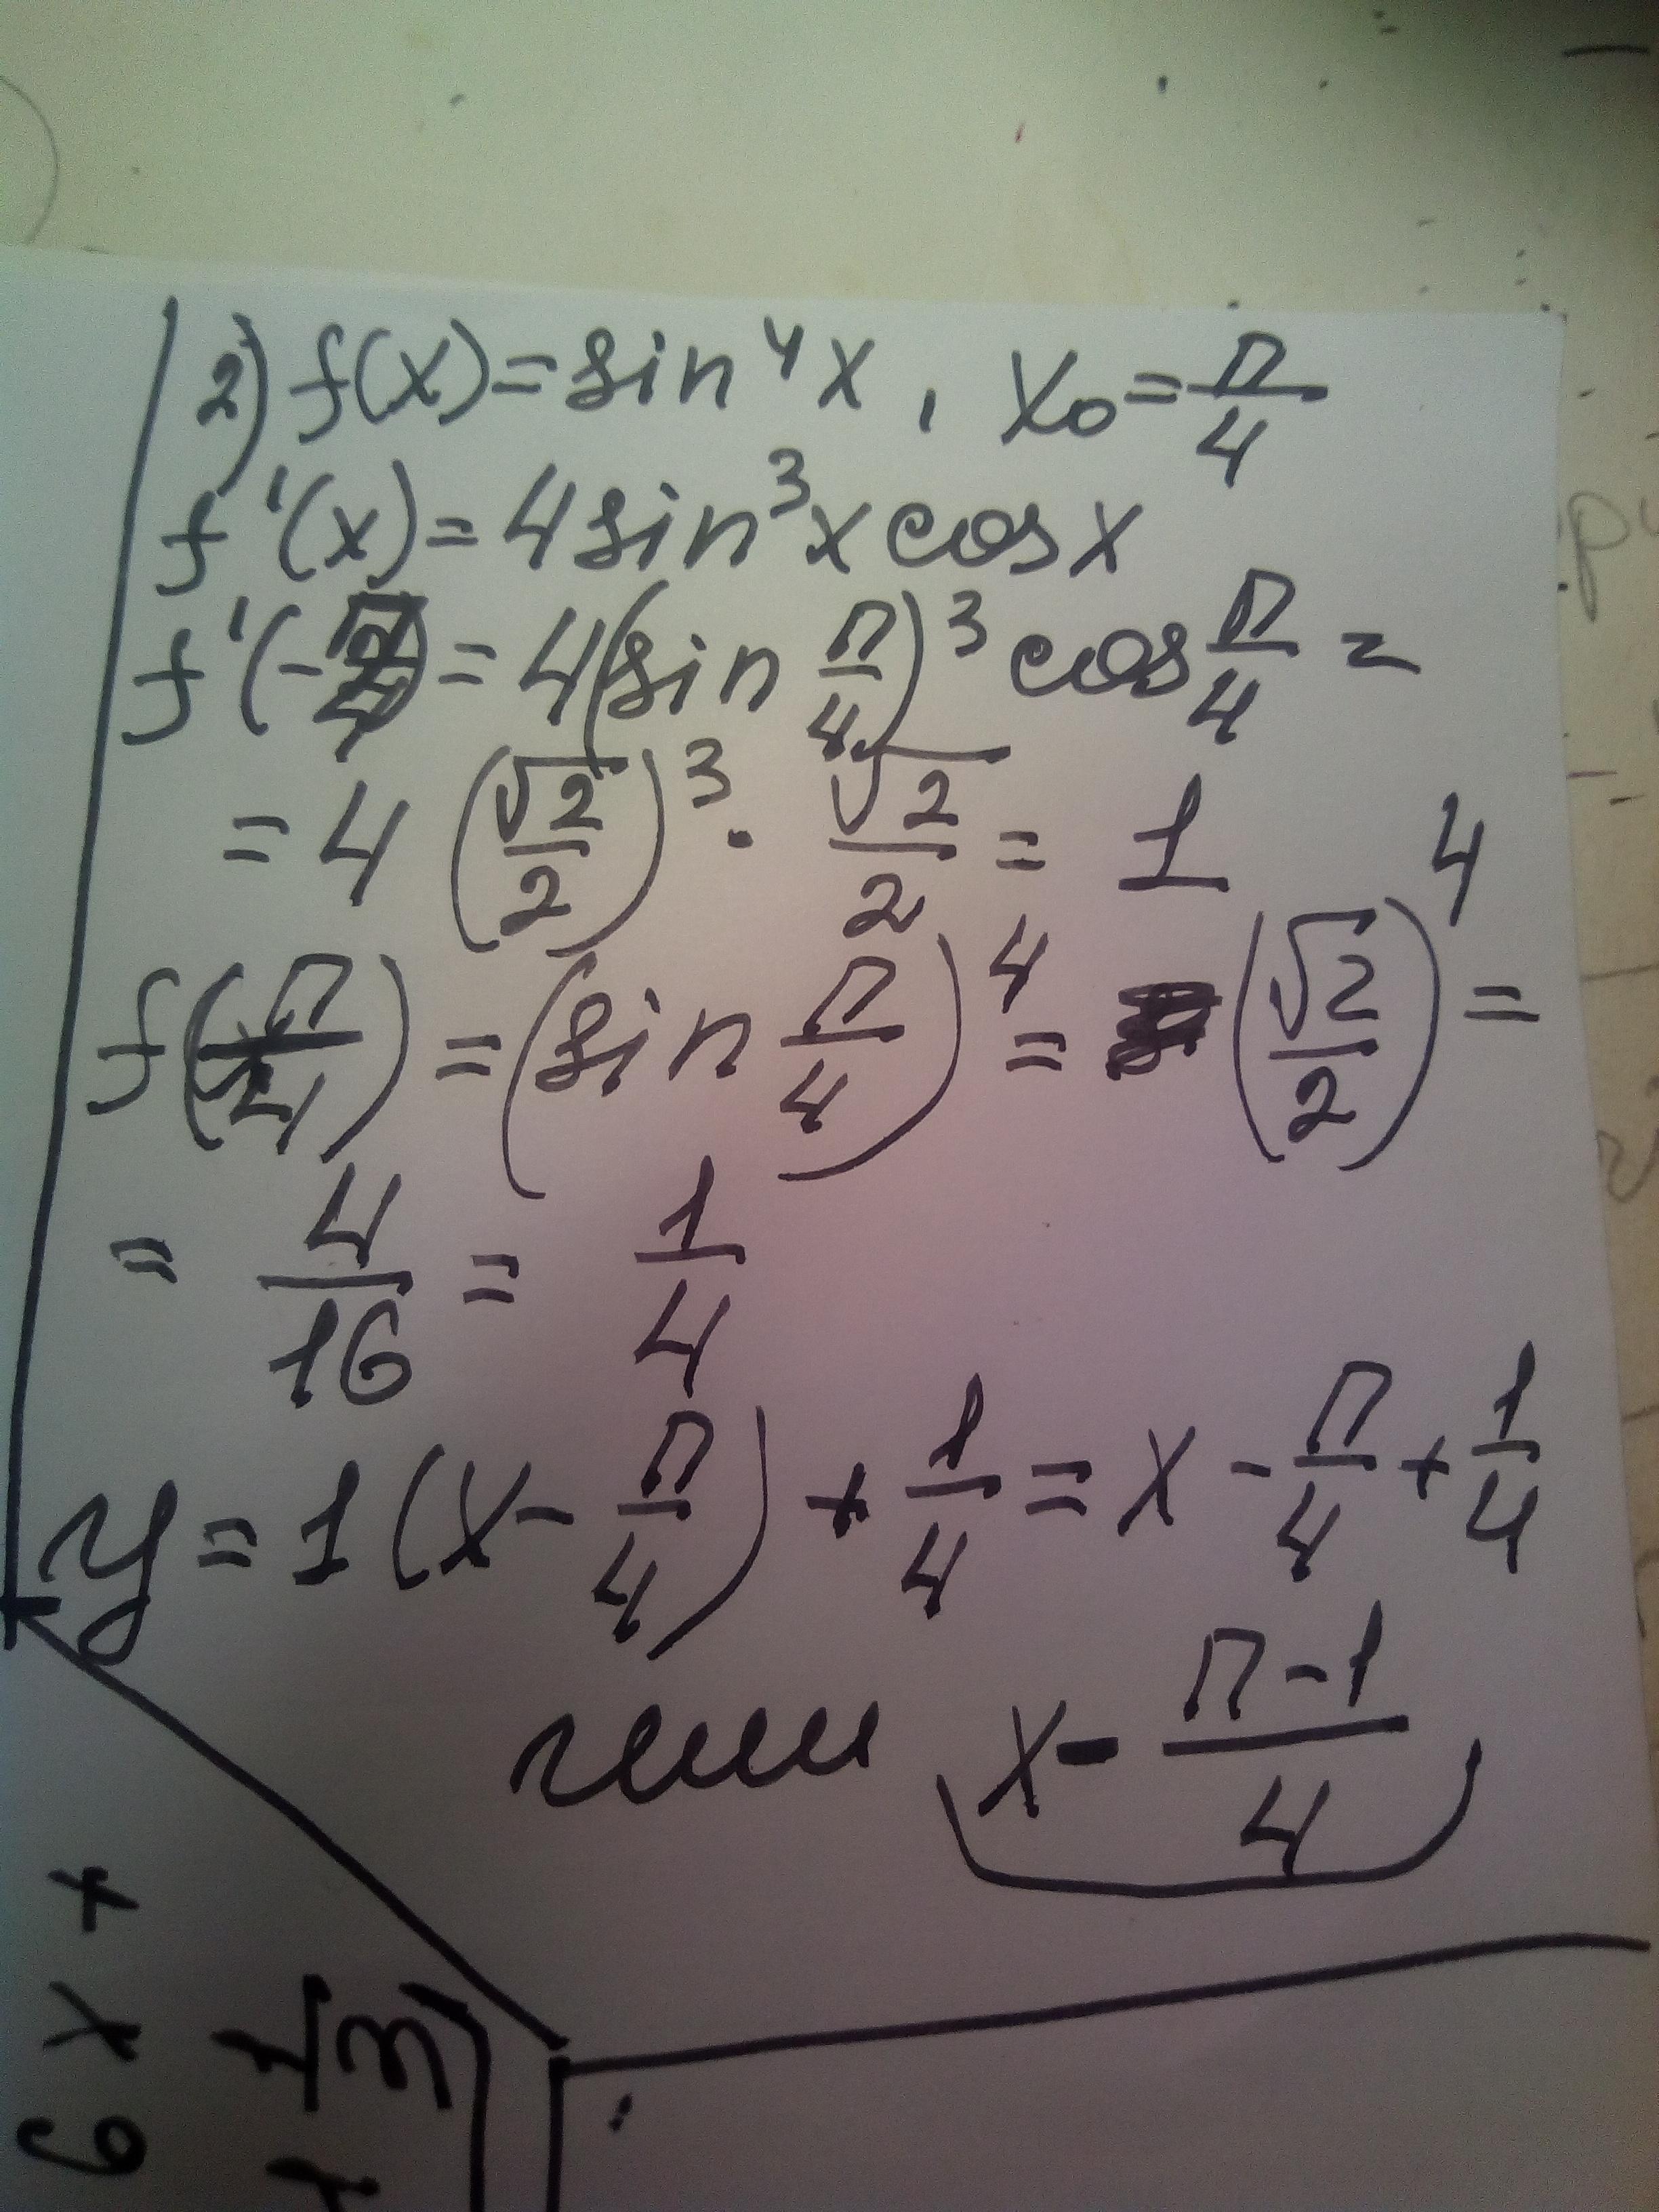 2) f(x)=sin⁴x, x₀=π/4
f'(x)=4sin³x cosx
f'(-π/4)=4(sin π/4)³cos π/4=
=4(√2/2)³·√2/2=1
f(π/4)=(sin π/4)⁴=(√2/2)⁴=
=4/16=1/4
y=1(x-π/4)+1/4=x-π/4+1/4
или x-π-1/4
6x+